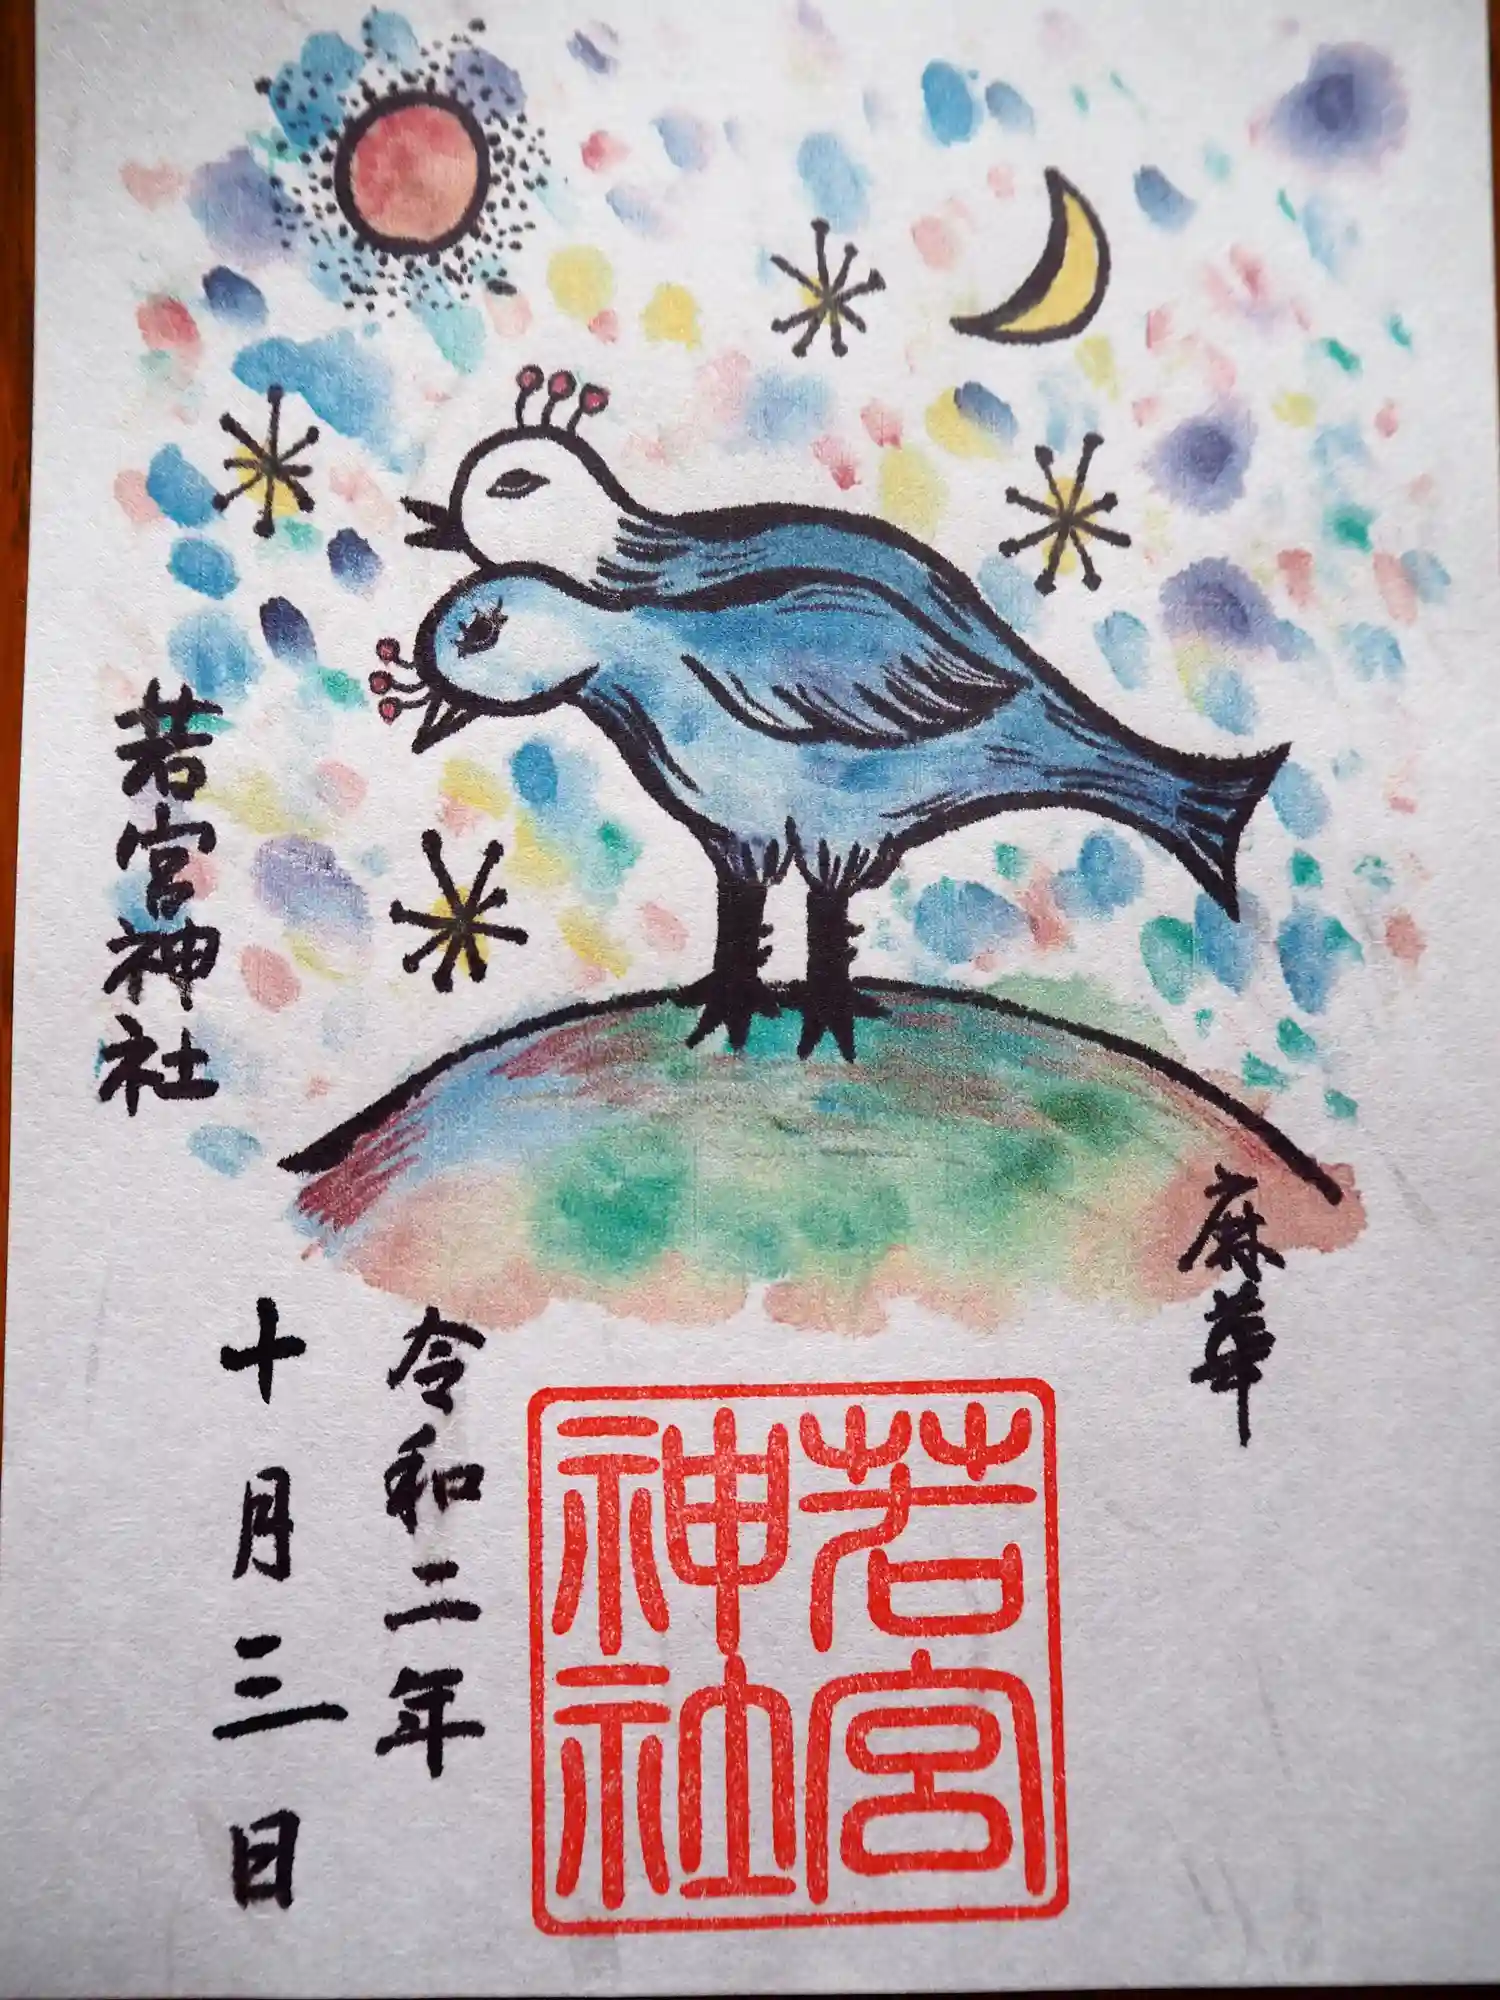 麻華
若宮
神社
令和二年
十月三日
若宮神社